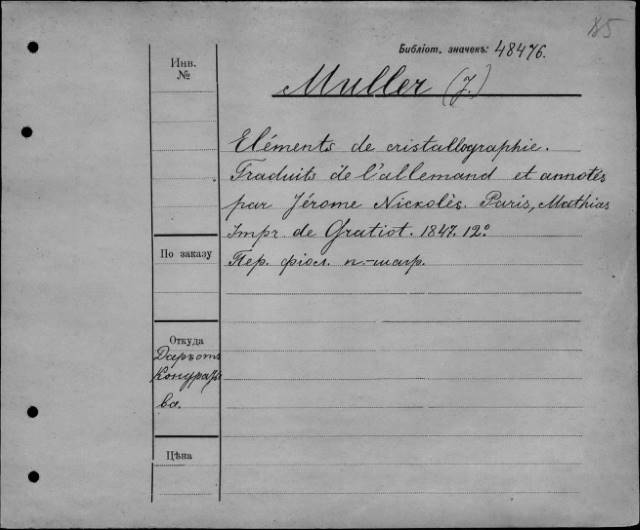 85
Библіот. значекъ: 48476.
Инв.
№
Muller (J.)
Eléments de cristallographie.
Traduits de l'allemand et annotés
par Jérome Nicklès. Paris, Mathias
Impr. de Gratiot. 1847. 12º
По заказу
Пер. фіол. п.-шагр.
Откуда
Даръ отъ
Кондра
ва.
Цѣна